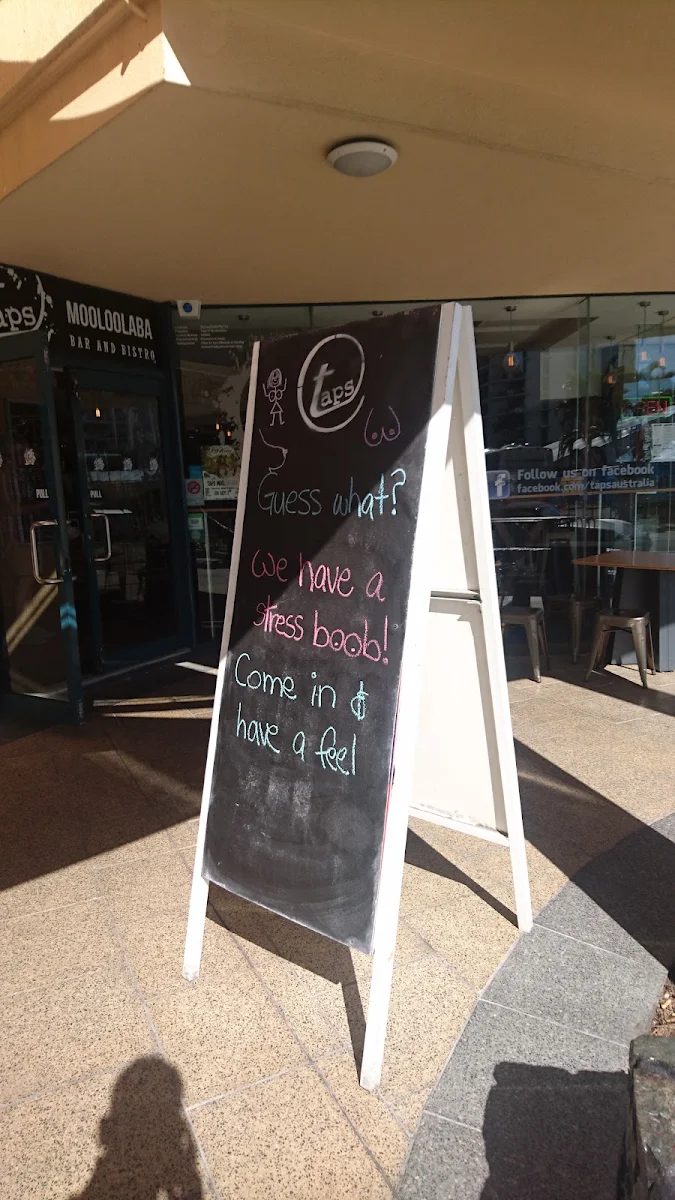 taps
MOOLOOLABA
BAR AND BISTRO
taps
Guess what?
We have a
stress boob!
Come in &
have a feel
PULL
PULL
Follow us on facebook
facebook.com/tapsaustralia